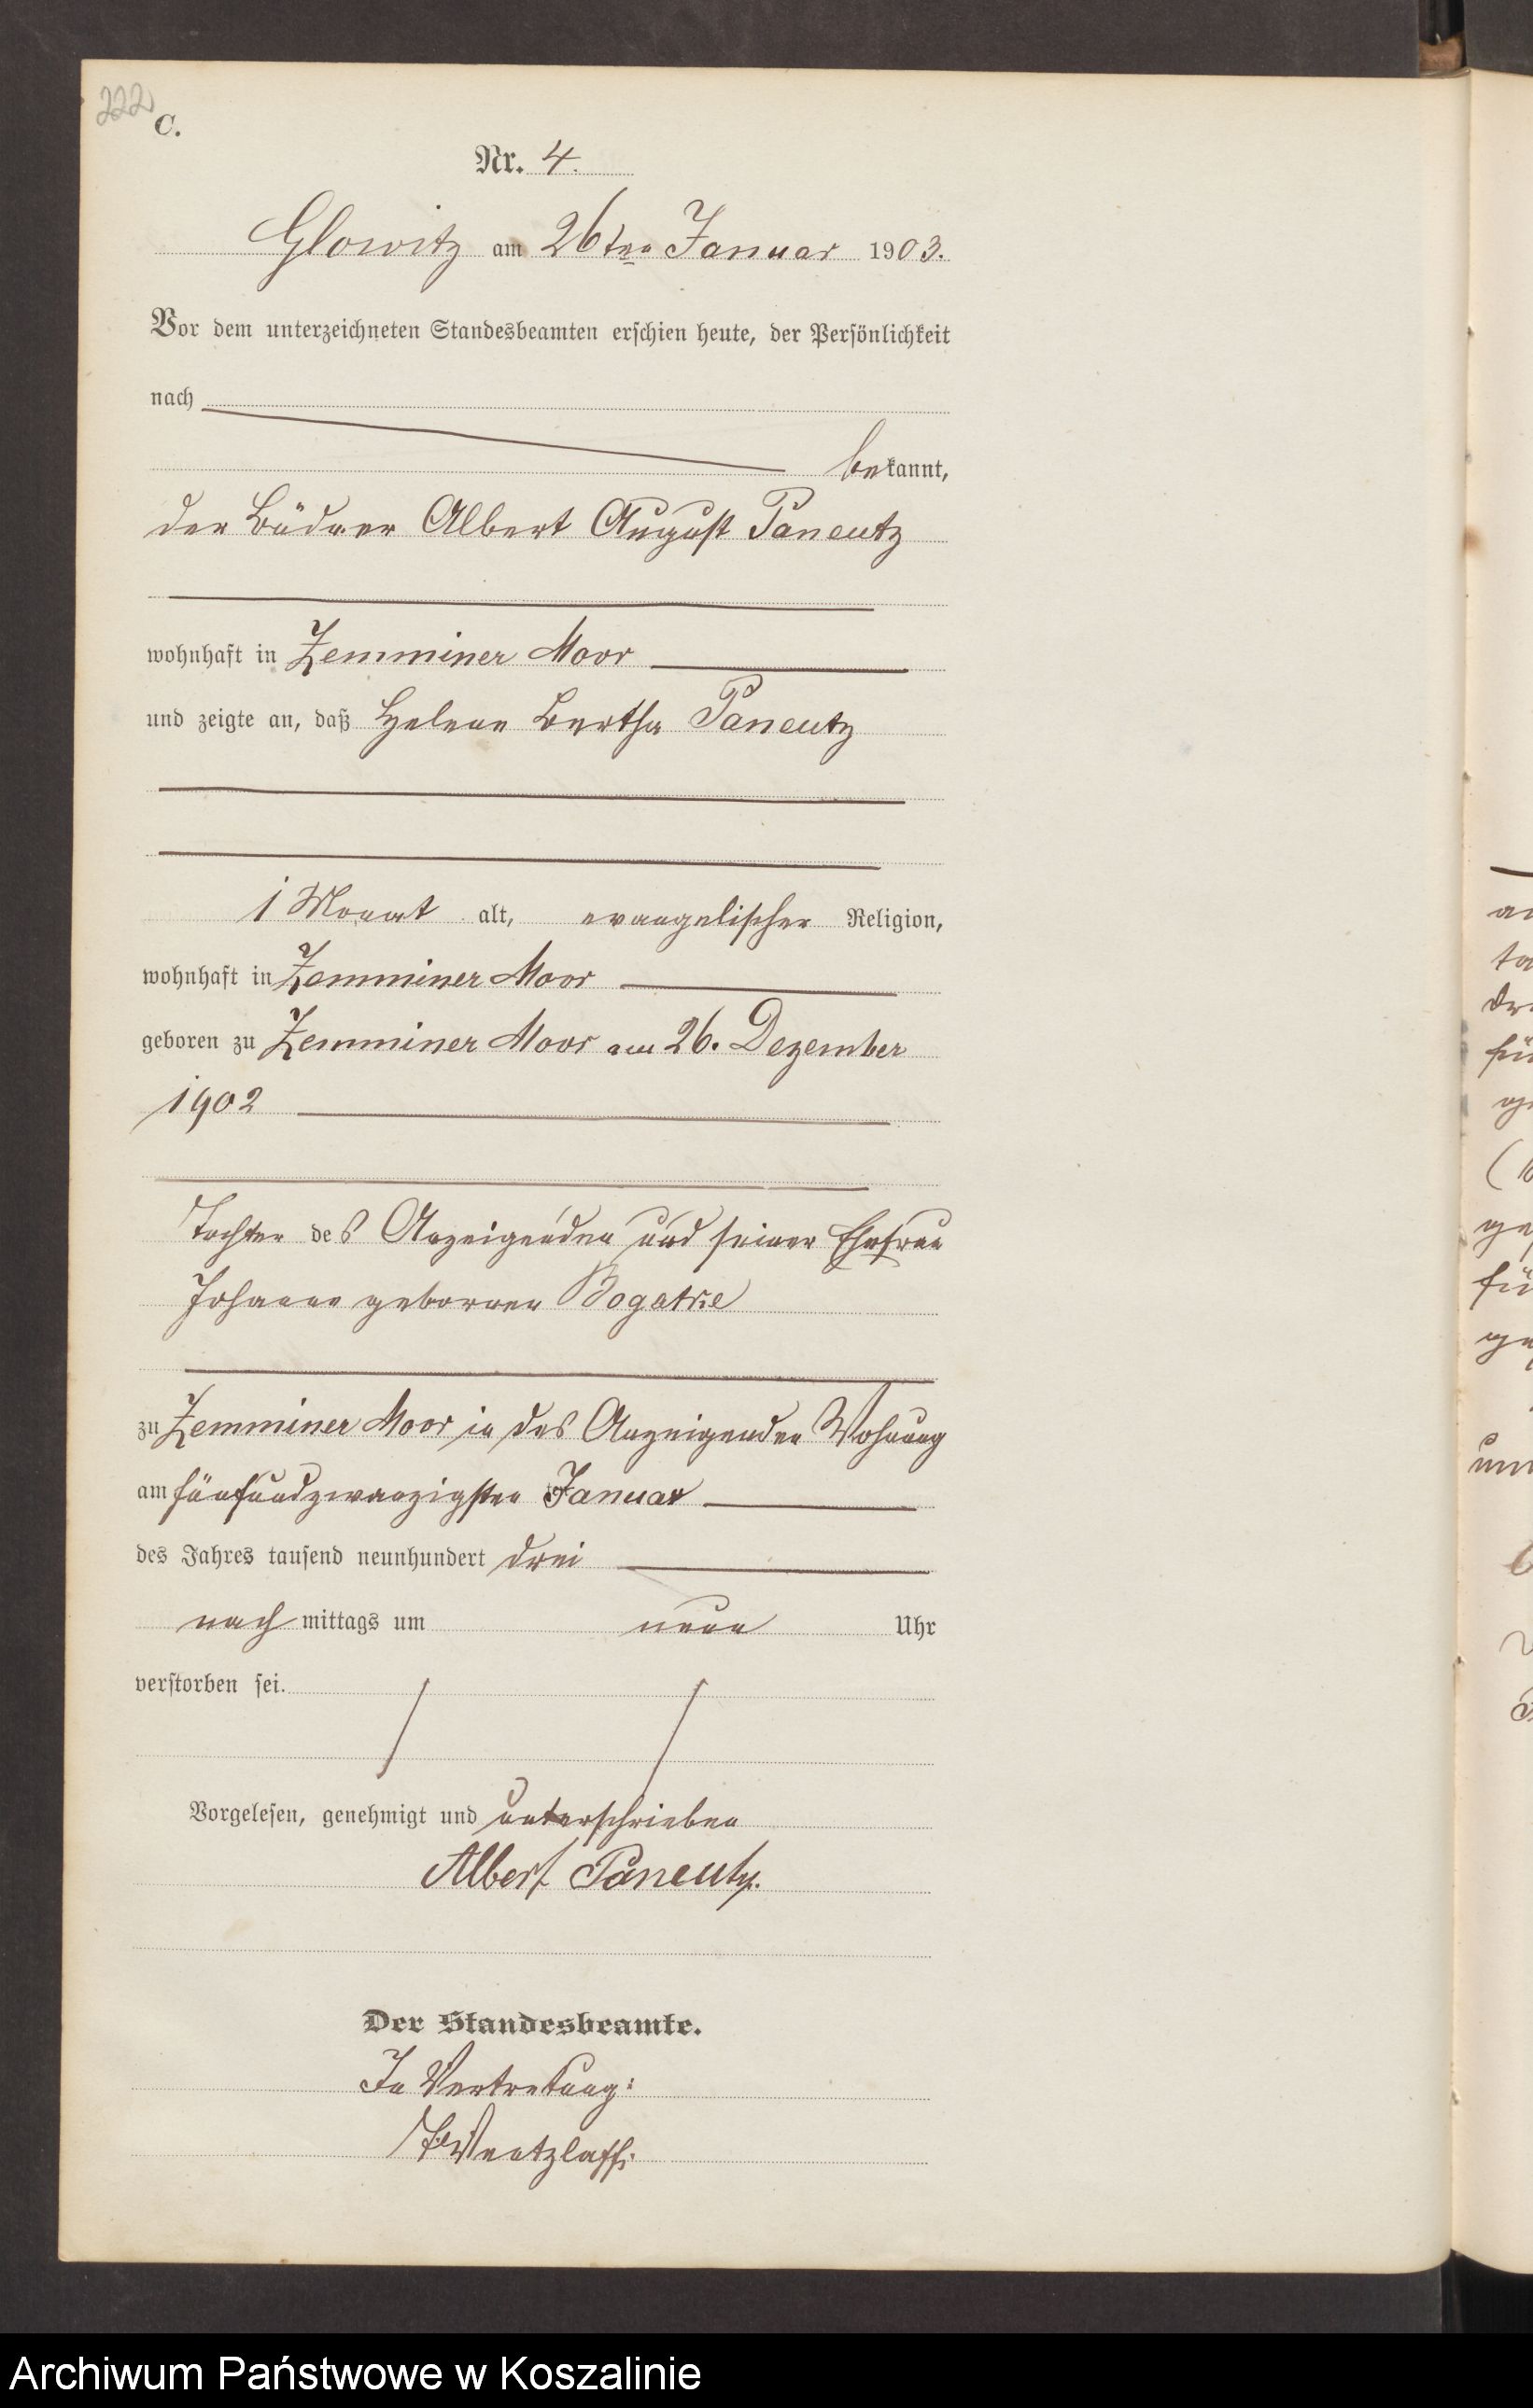 222
C.
Nr. 4.
Glowitz am 26ten Januar 1903.
Vor dem unterzeichneten Standesbeamten erschien heute, der Persönlichkeit
nach
bekannt,
der Büdner Albert August Paneutz
wohnhaft in Zemminer Moor
und zeigte an, daß Helene Bertha Paneutz
1 Monat alt, evangelischer Religion,
wohnhaft in Zemminer Moor
geboren zu Zemminer Moor am 26. Dezember
1902
Tochter des Anzeigenden und seiner Ehefrau
Johanne geborenen Bogatke
zu Zemminer Moor in des Anzeigenden Wohnung
am fünfundzwanzigsten Januar
des Jahres tausend neunhundert drei
nach mittags um neun Uhr
verstorben sei.
Vorgelesen, genehmigt und unterschrieben
Albert Paneutz.
Der Standesbeamte.
In Vertretung:
Wentzlaff.
Archiwum Państwowe w Koszalinie